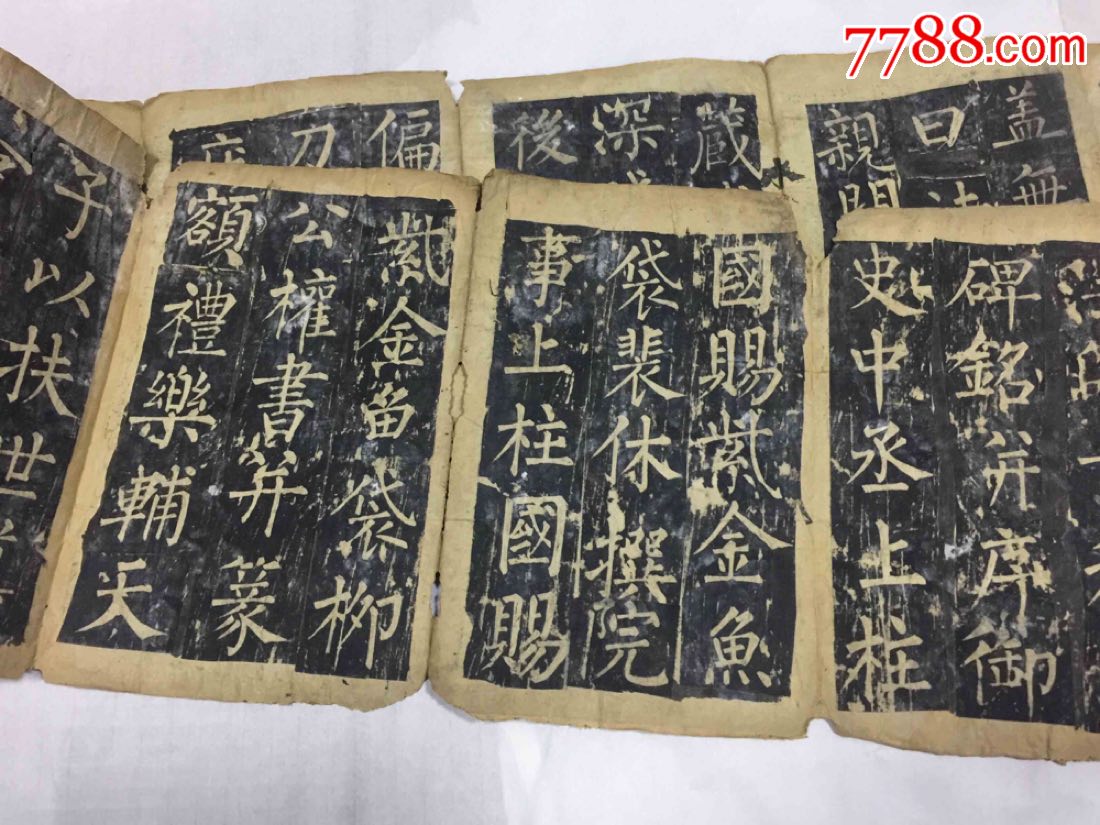 7788.com
蓋無
曰法
親聞
藏
深
後
偏
刀
碑銘并序御
史中丞上柱
國賜紫金魚
袋裴休撰院
事上柱國賜
紫金魚袋柳
公權書并篆
額禮樂輔天
子以扶世